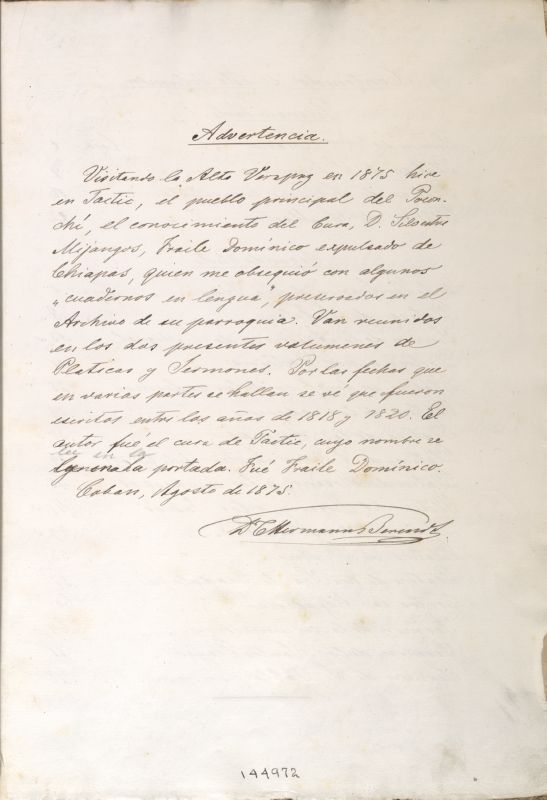 Advertencia.
Visitando la Alta Verapaz en 1875 hice
en Tactic, el pueblo principal del Pocon-
chí, el conocimiento del Cura, D. Silvestre
Mijangos, Fraile Domínico expulsado de
Chiapas, quien me obsequió con algunos
„cuadernos en lengua", preservados en el
Archivo de su parroquia. Van reunidos
en los dos presentes volumenes de
Platicas y Sermones. Por las fechas que
en varias partes se hallan se vé que fueron
escritos entre los años de 1818 y 1820. El
autor fué el cura de Tactic, cuyo nombre se
lee en la
la portada. Fué Fraile Domínico.
Coban, Agosto de 1875.
Dr C Hermann Berendt
144972